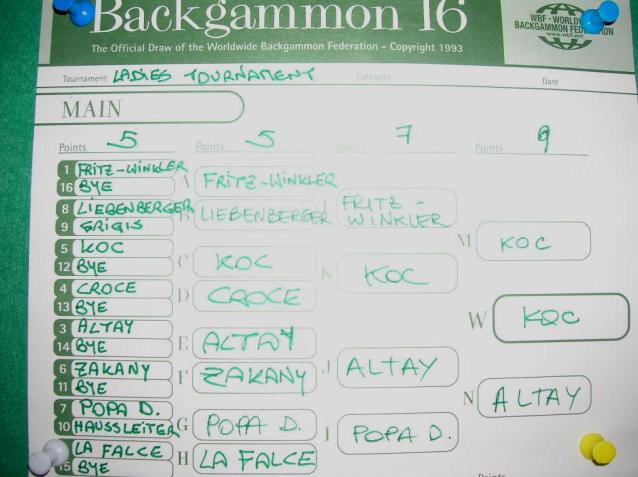 Backgammon 16
The Official Draw of the Worldwide Backgammon Federation - Copyright 1993
WBF - WORLDW
BACKGAMMON FEDERATION
www.wbf.net
Tournament LADIES TOURNAMENT Category Date
MAIN
Points 5 Points 5 Points 7 Points 9
1 FRITZ-WINKLER
16 BYE
A FRITZ-WINKLER
8 LIEBENBERGER
9 GRIGIS
B LIEBENBERGER
FRITZ-
WINKLER
5 KOC
12 BYE
C KOC
4 CROCE
13 BYE
D CROCE
K KOC
M KOC
3 ALTAY
14 BYE
E ALTAY
6 ZAKANY
11 BYE
F ZAKANY
J ALTAY
7 POPA D.
10 HAUSSLEITER
G POPA D.
LA FALCE
15 BYE
H LA FALCE
I POPA D.
N ALTAY
W KOC
Points